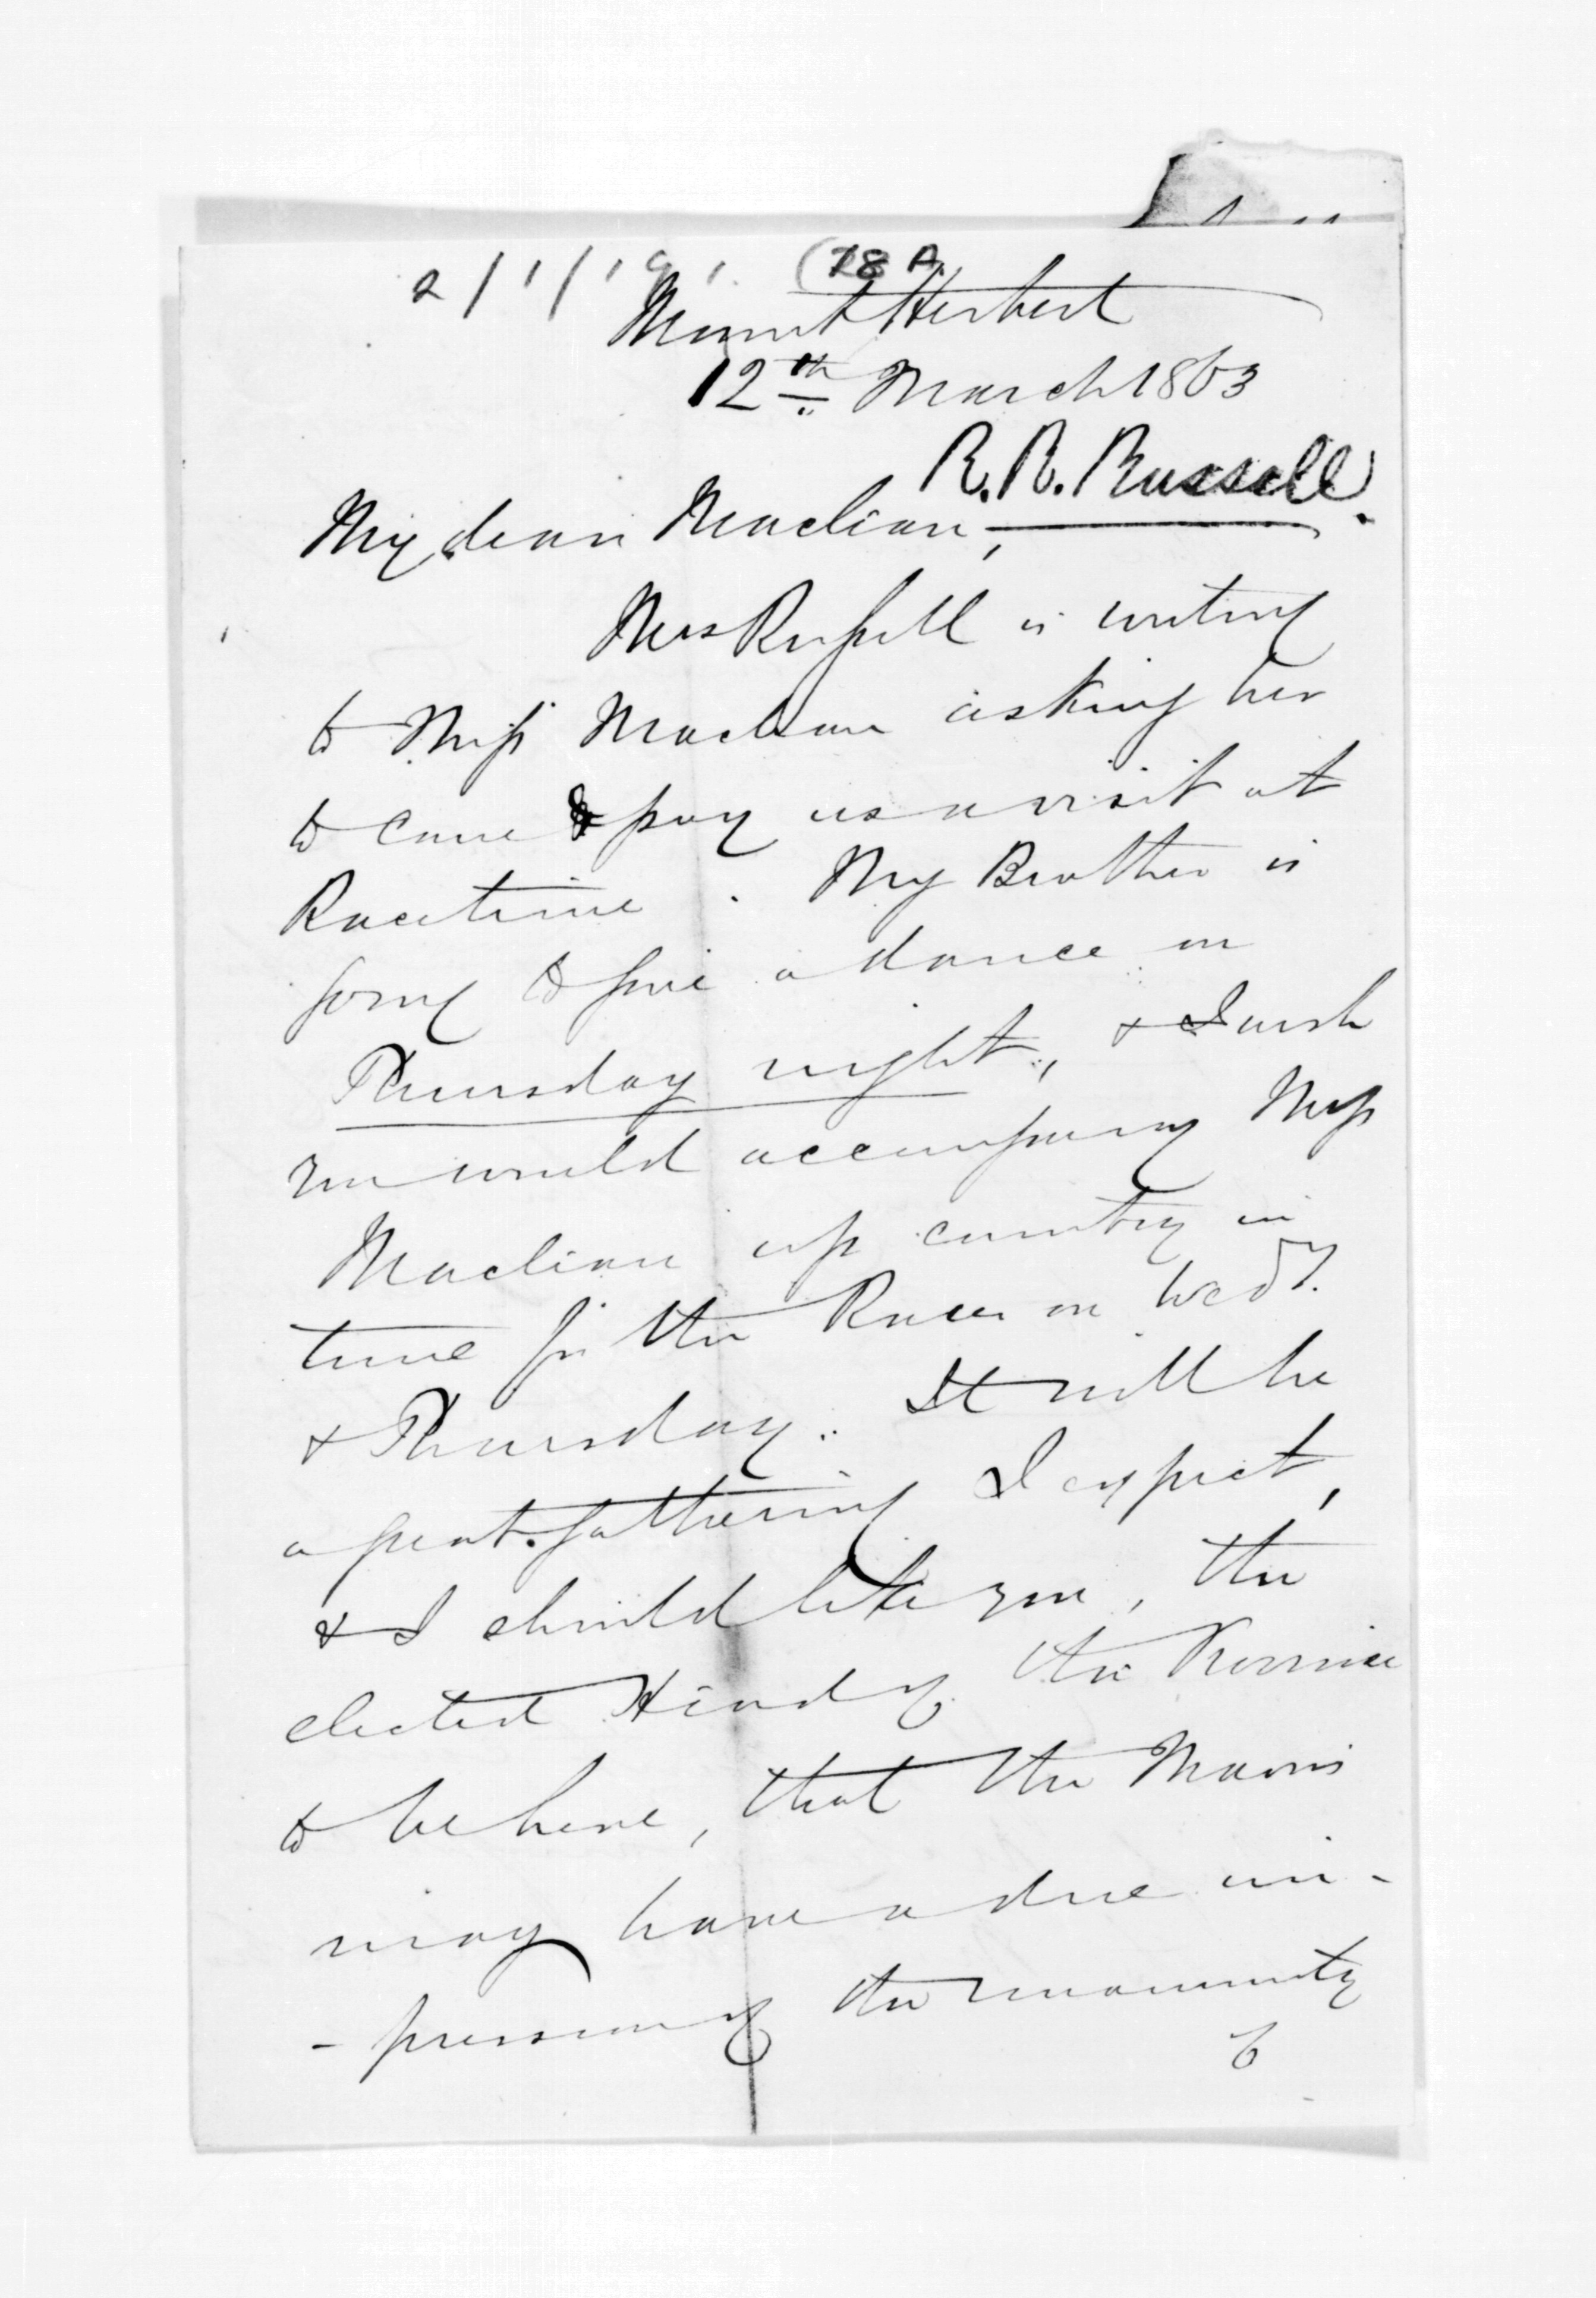 2/1/19 (78 A.
Mount Herbert
12th March 1863
R. R. Russell.
My dear Maclean,
Mrs Russell is writing
to Miss Maclean asking her
to come & pay us a visit at
Racetime. My Brother is
going to give a dance on
Thursday night, & I wish
you would accompany Miss
Maclean up country in
time for the Races on Wedy.
& Thursday. It will be
a great gathering I expect,
& I should like you, the
elected Head of the Province
to be here, that the Maoris
may have a due im-
-pression of the
of